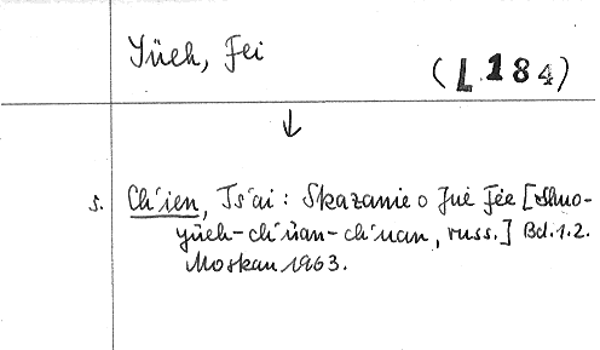 Yüeh, Fei
(L 184)
↓
s. Ch'ien, Ts'ai: Skazanie o Jue Fee [Shuo-
yüeh-ch'üan-chuan, russ.] Bd. 1.2.
Moskau 1963.